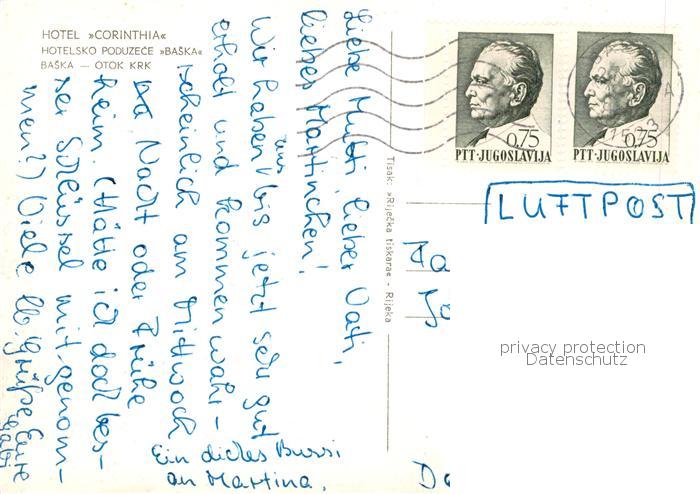 HOTEL »CORINTHIA«
HOTELSKO PODUZEĆE »BAŠKA«
BAŠKA — OTOK KRK
Liebe Mutti, lieber Vati,
liebes Martinchen!
Wir haben uns bis jetzt sehr gut
erholt und kommen wahr-
scheinlich am Mittwoch
Nacht oder Frühe
heim. (Hätte ich doch bes-
ser Schlüssel mit-genom-
men?) Viele lb. Grüße Eure
Gabi
Ein dickes Bussi
an Martina.
Tisak: »Riječka tiskara« - Rijeka
0,75
PTT·JUGOSLAVIJA
0,75
PTT·JUGOSLAVIJA
LUFTPOST
privacy protection
Datenschutz